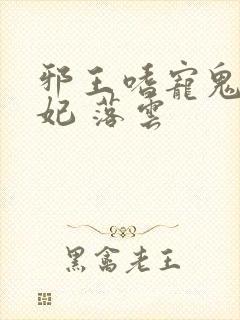 邪王嗜寵鬼
妃 落雲
黑禽老王